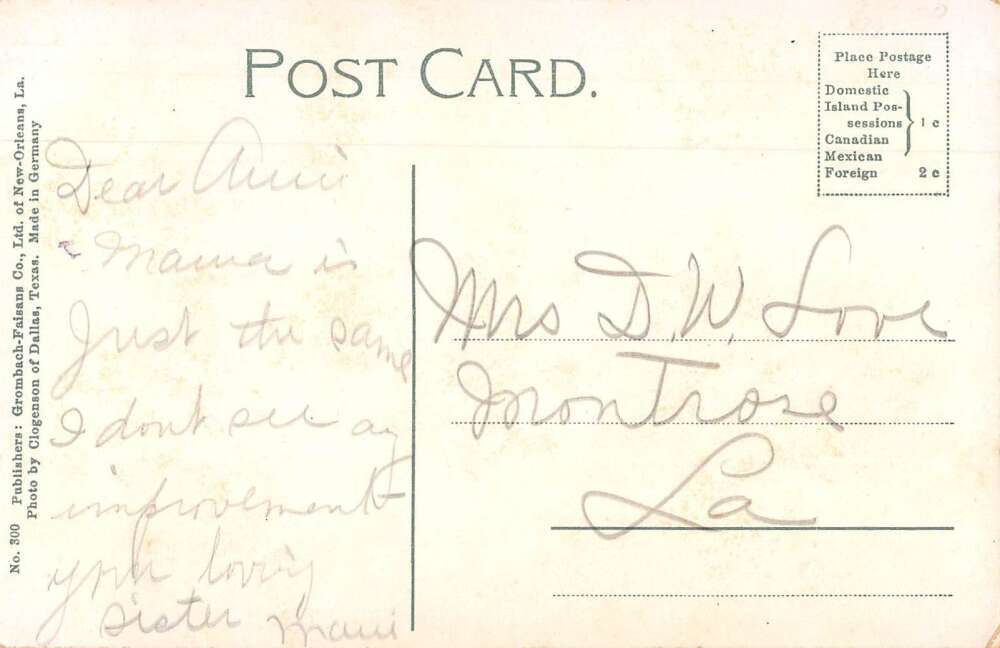 POST CARD.
Place Postage
Here
Domestic
Island Pos-
sessions
Canadian
Mexican
1 c
Foreign 2 c
No. 300 Publishers: Grombach-Faisans Co., Ltd. of New-Orleans, La.
Photo by Clogenson of Dallas, Texas. Made in Germany
Dear Annie
Mama is
Just the same
I dont see ay
improvement
your loving
sister
Mrs D. W. Love
Montrose
La